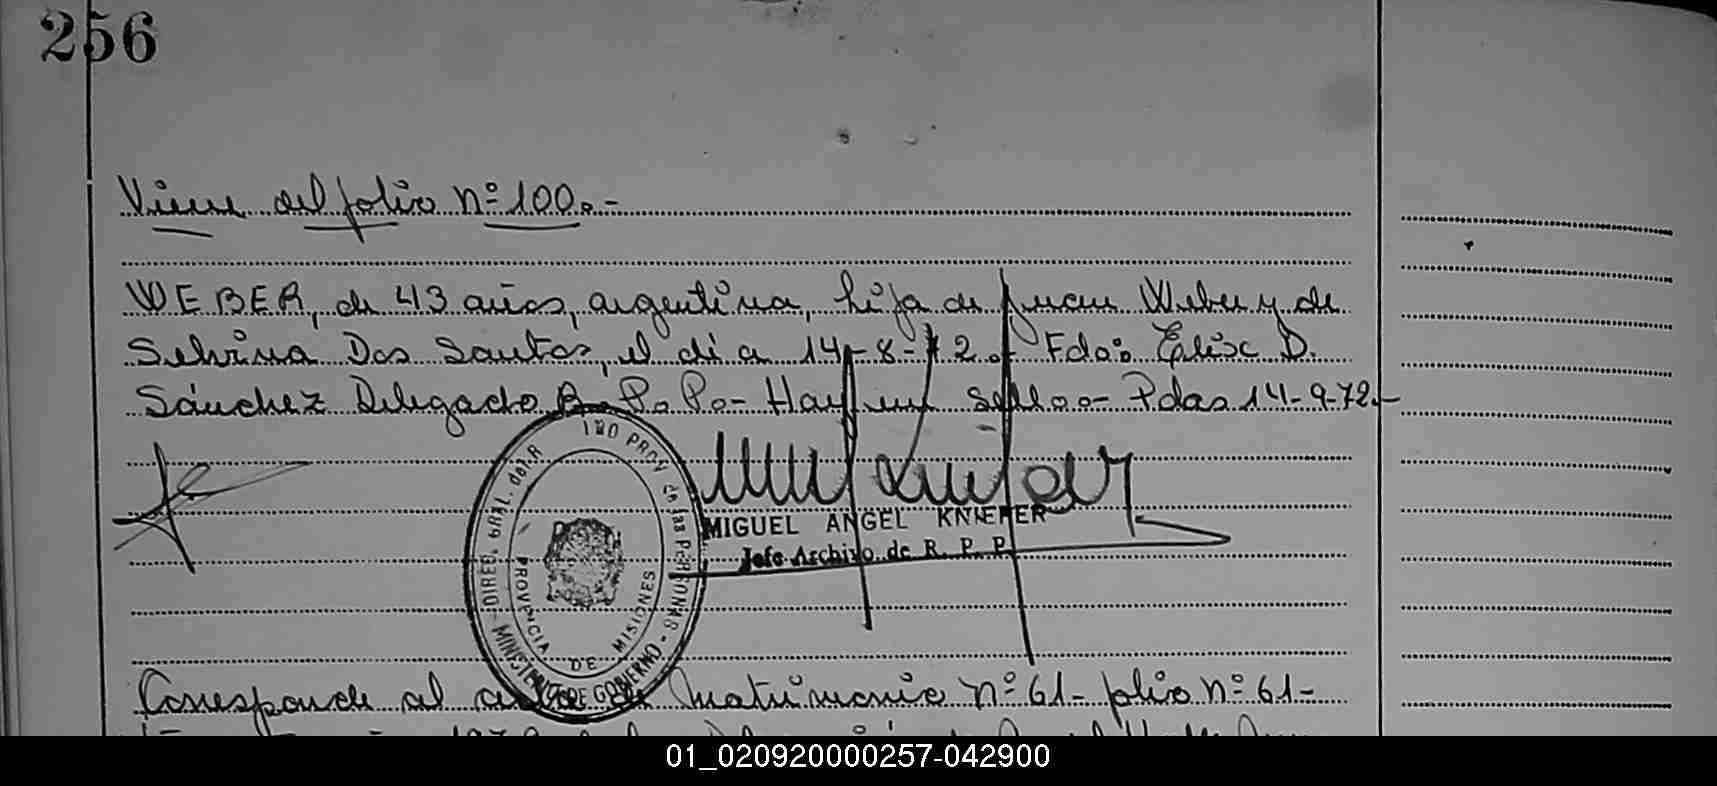 256
Viene del folio nº 100.-
WEBER, de 43 años, argentina, hija de Juan Weber y de
Selvina Dos Santos, el dí a 14-8-72.- Fdo: Elisc D.
Sánchez Delegado R. P. P.- Hay un Sello.- Pdas 14-9-72.-
MIGUEL ANGEL KNIEFER
Jefe Archivo de R. P. P.
DIREC. GRAL. del R TRO PROV de las PERSONAS - MINISTERIO DE GOBIERNO -
PROVINCIA DE MISIONES
Corresponde al acta de Matrimonio nº 61- folio nº 61-
01_020920000257-042900